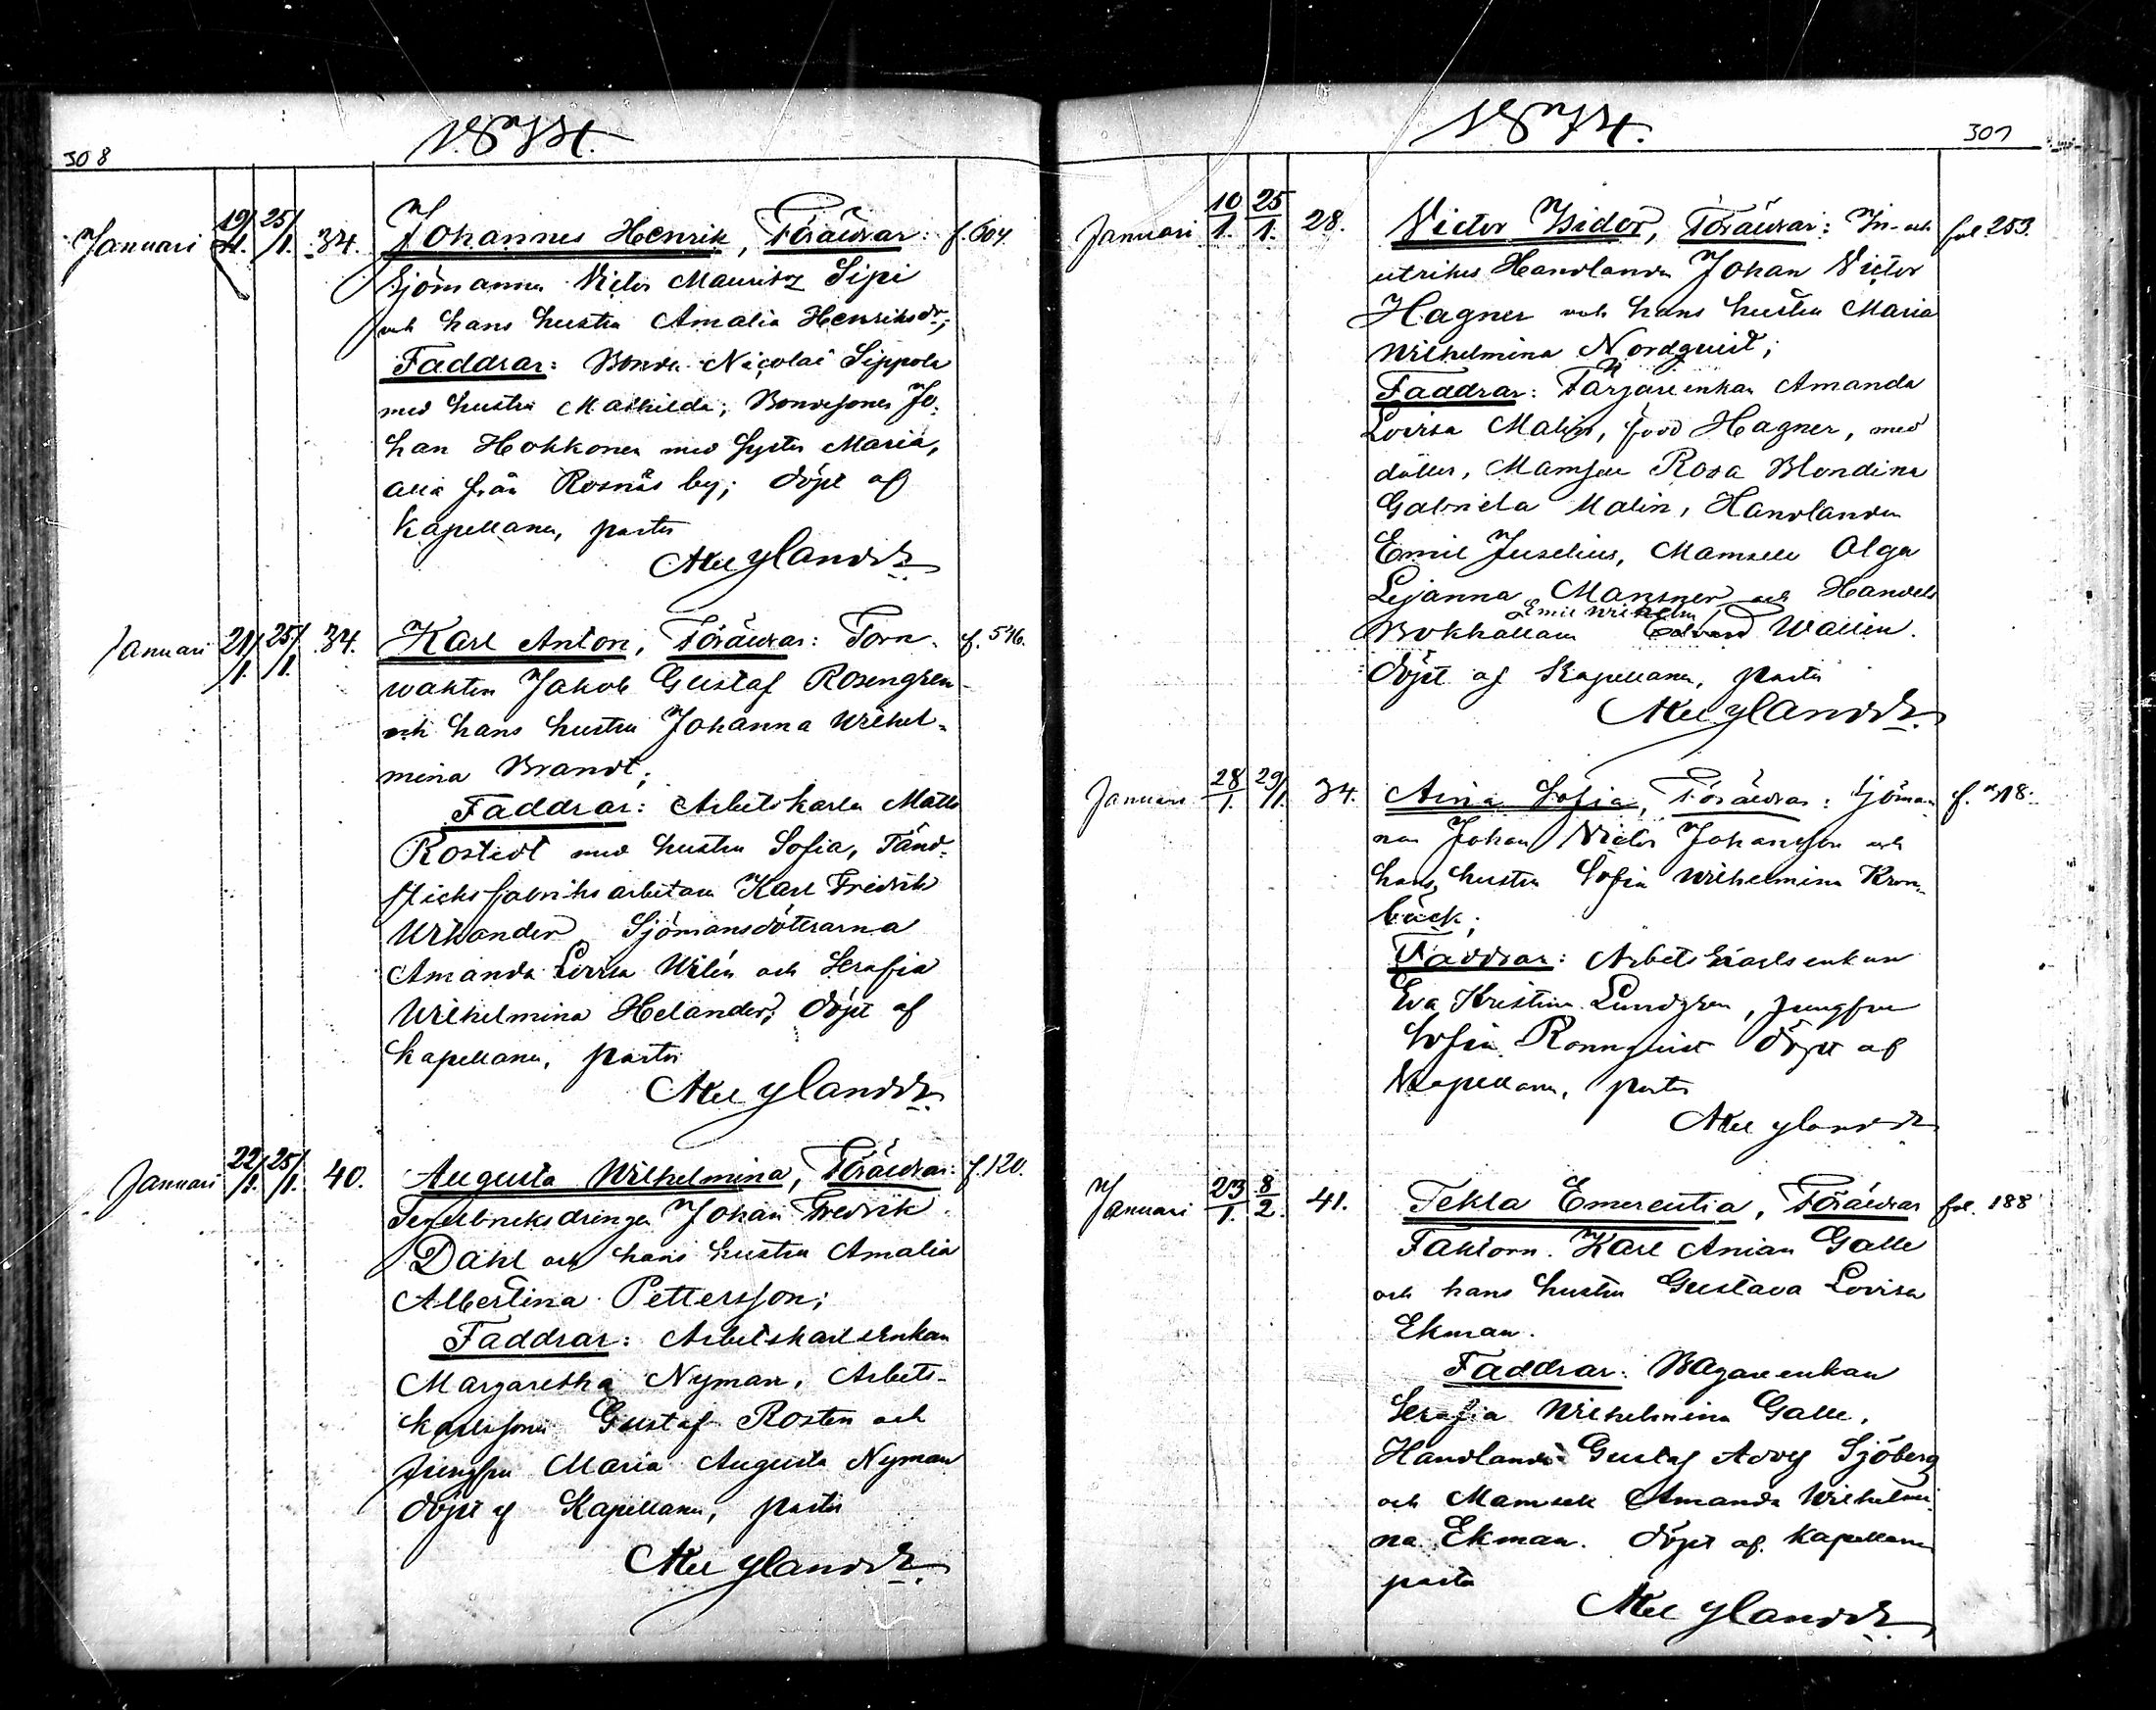 308
1874.
Januari 19/1. 25/1. 34. Johannes Henrik, Föräldrar: f. 604.
Sjömannen Victor Mauritz Sipi
och hans hustru Amalia Henriksdr;
Faddrar: Bonden Nicolai Sippola
med hustru Mathilda; Bondesonen Jo-
han Hokkonen med syster Maria,
alla från Rosnäs by; döpt af
Kapellanen, pastor
Axel Ylander
Januari 21/1. 25/1. 34. Karl Anton, Föräldrar: Torn- f. 546.
wakten Jakob Gustaf Rosengren
och hans hustru Johanna Wilhel-
mina Brandt;
Faddrar: Arbetskarlen Matts
Rostedt med hustru Sofia, Tänd-
sticksfabriksarbetaren Karl Fredrik
Wikander Sjömansdöttrarna
Amanda Lovisa Wilén och Serafia
Wilhelmina Helander; döpt af
Kapellanen, pastor
Axel Ylander
Januari 22/1. 25/1. 40. Augusta Wilhelmina, Föräldrar: f. 120.
Tegelbruksdrängen Johan Fredrik
Dahl och hans hustru Amalia
Albertina Pettersson;
Faddrar: Arbetskarlsenkan
Margaretha Nyman, Arbets-
karlssonen Gustaf Rosten och
Jungfru Maria Augusta Nyman
döpt af Kapellanen, pastor
Axel Ylander
1874.
301
Januari 10/1. 25/1. 28. Victor Isidor, Föräldrar: In- och fol. 253.
utrikes Handlanden Johan Victor
Hagner och hans hustru Maria
Wilhelmina Nordquist;
Faddrar: Färjareenkan Amanda
Lovisa Malin, född Hagner, med
dotter, Mamsell Rosa Blondina
Gabriela Malin, Handlanden
Emil Juselius, Mamsell Olga
Lejanna Mansner och Handels
Emil Wilhelm
Bokhållaren Edvard Wallin.
döpt af Kapellanen, pastor
Axel Ylander
Januari 28/1. 29/1. 34. Aina Sofia, Föräldrar: Sjöman- f. 318.
nen Johan Victor Johansson och
hans hustru Sofia Wilhelmina Kron-
bäck;
Faddrar: Arbetskarlsenkan
Eva Kristina Lundgren, jungfru
Sofia Rönnquist döpt af
Kapellanen, pastor
Axel Ylander
Januari 23/1. 8/2. 41. Tekla Emerentia, Föräldrar fol. 188
Faktorn Karl Anian Galle
och hans hustru Gustava Lovisa
Ekman.
Faddrar: Bagareenkan
Serafia Wilhelmina Galle,
Handlanden Gustaf Adolf Sjöberg
och Mamsell Amanda Wilhelmi-
na Ekman. döpt af Kapellanen
pastor
Axel Ylander